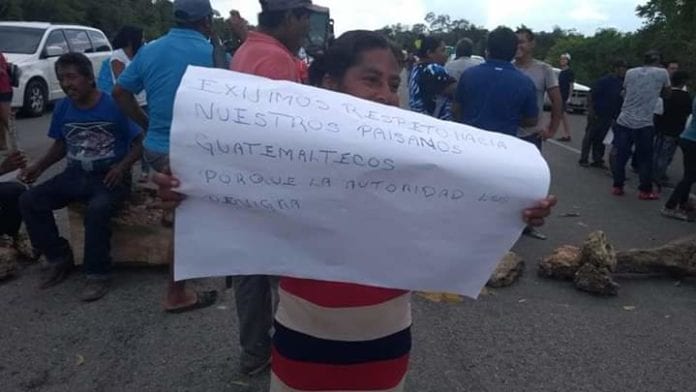 EXIJIMOS RESPETO HACIA
NUESTROS PAISANOS
GUATEMALTECOS
PORQUE LA AUTORIDAD LOS
DENIGRA